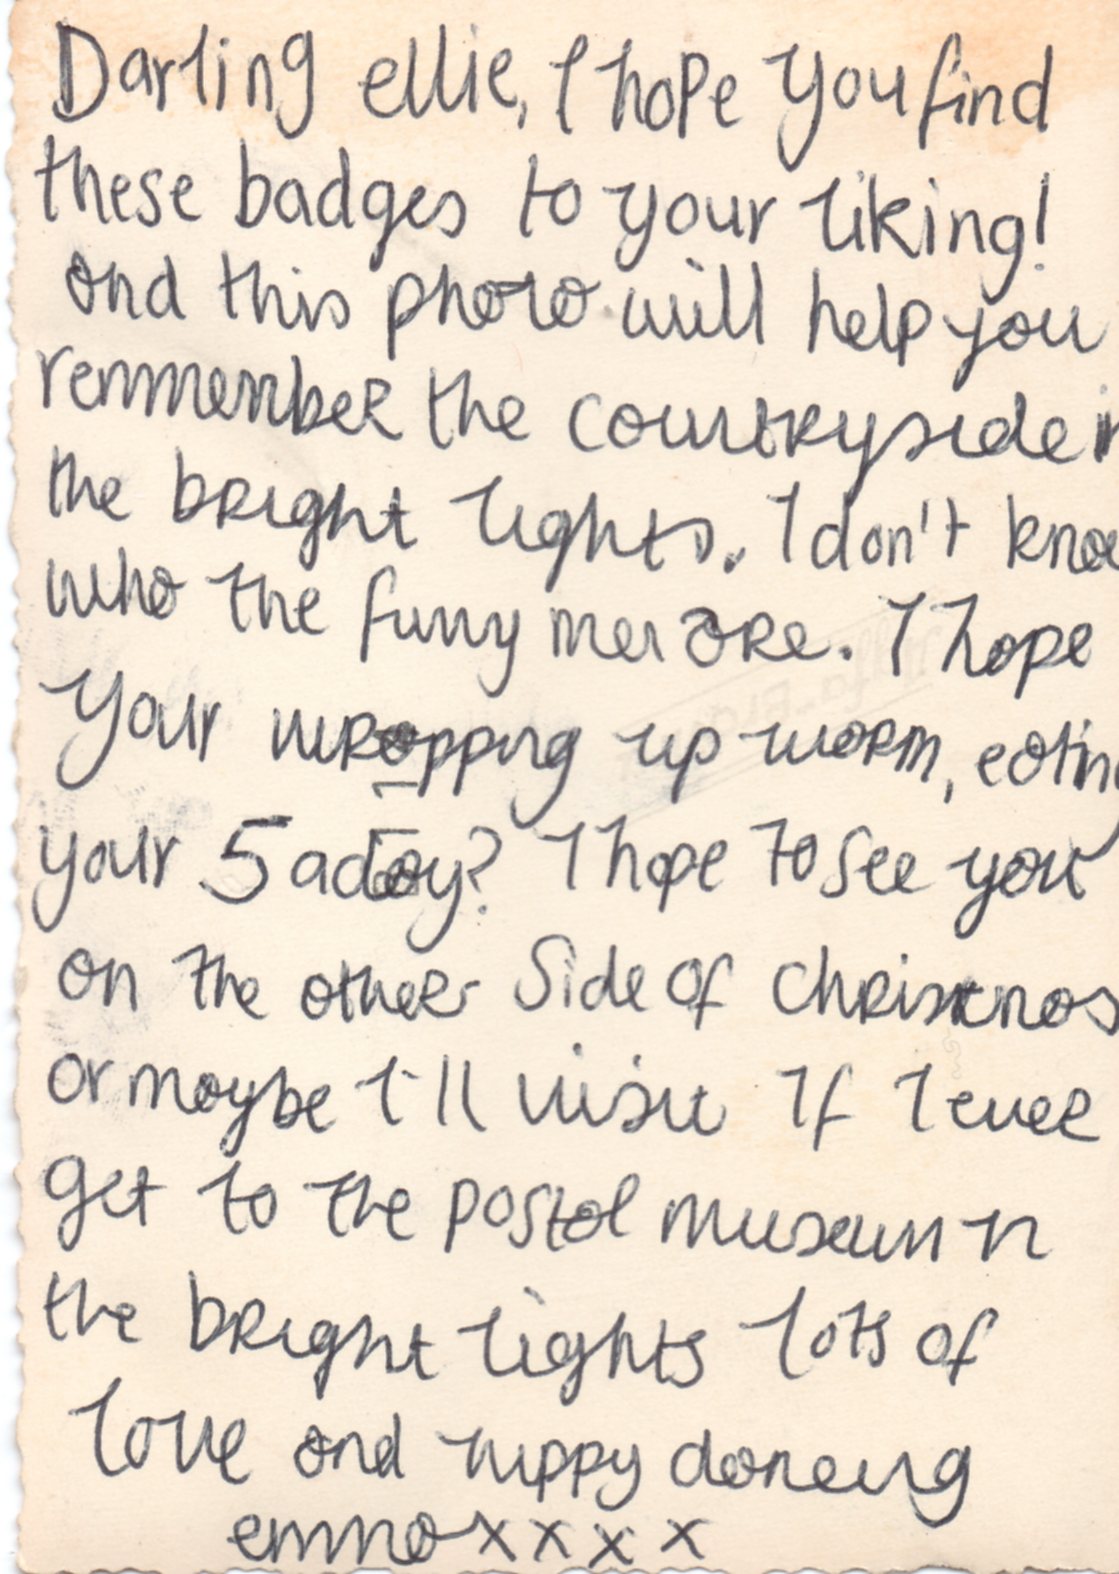 Darling ellie, I hope you find
these badges to your liking!
and this photo will help you
remmember the countryside in
the bright lights. I don't know
who the funny men are. I hope
your wrapping up warm, eating
your 5 a day? I hope to see you
on the other side of christmas
or maybe I'll visit If I ever
get to the postal museum in
the bright lights lots of
love and hippy dancing
emma x x x x